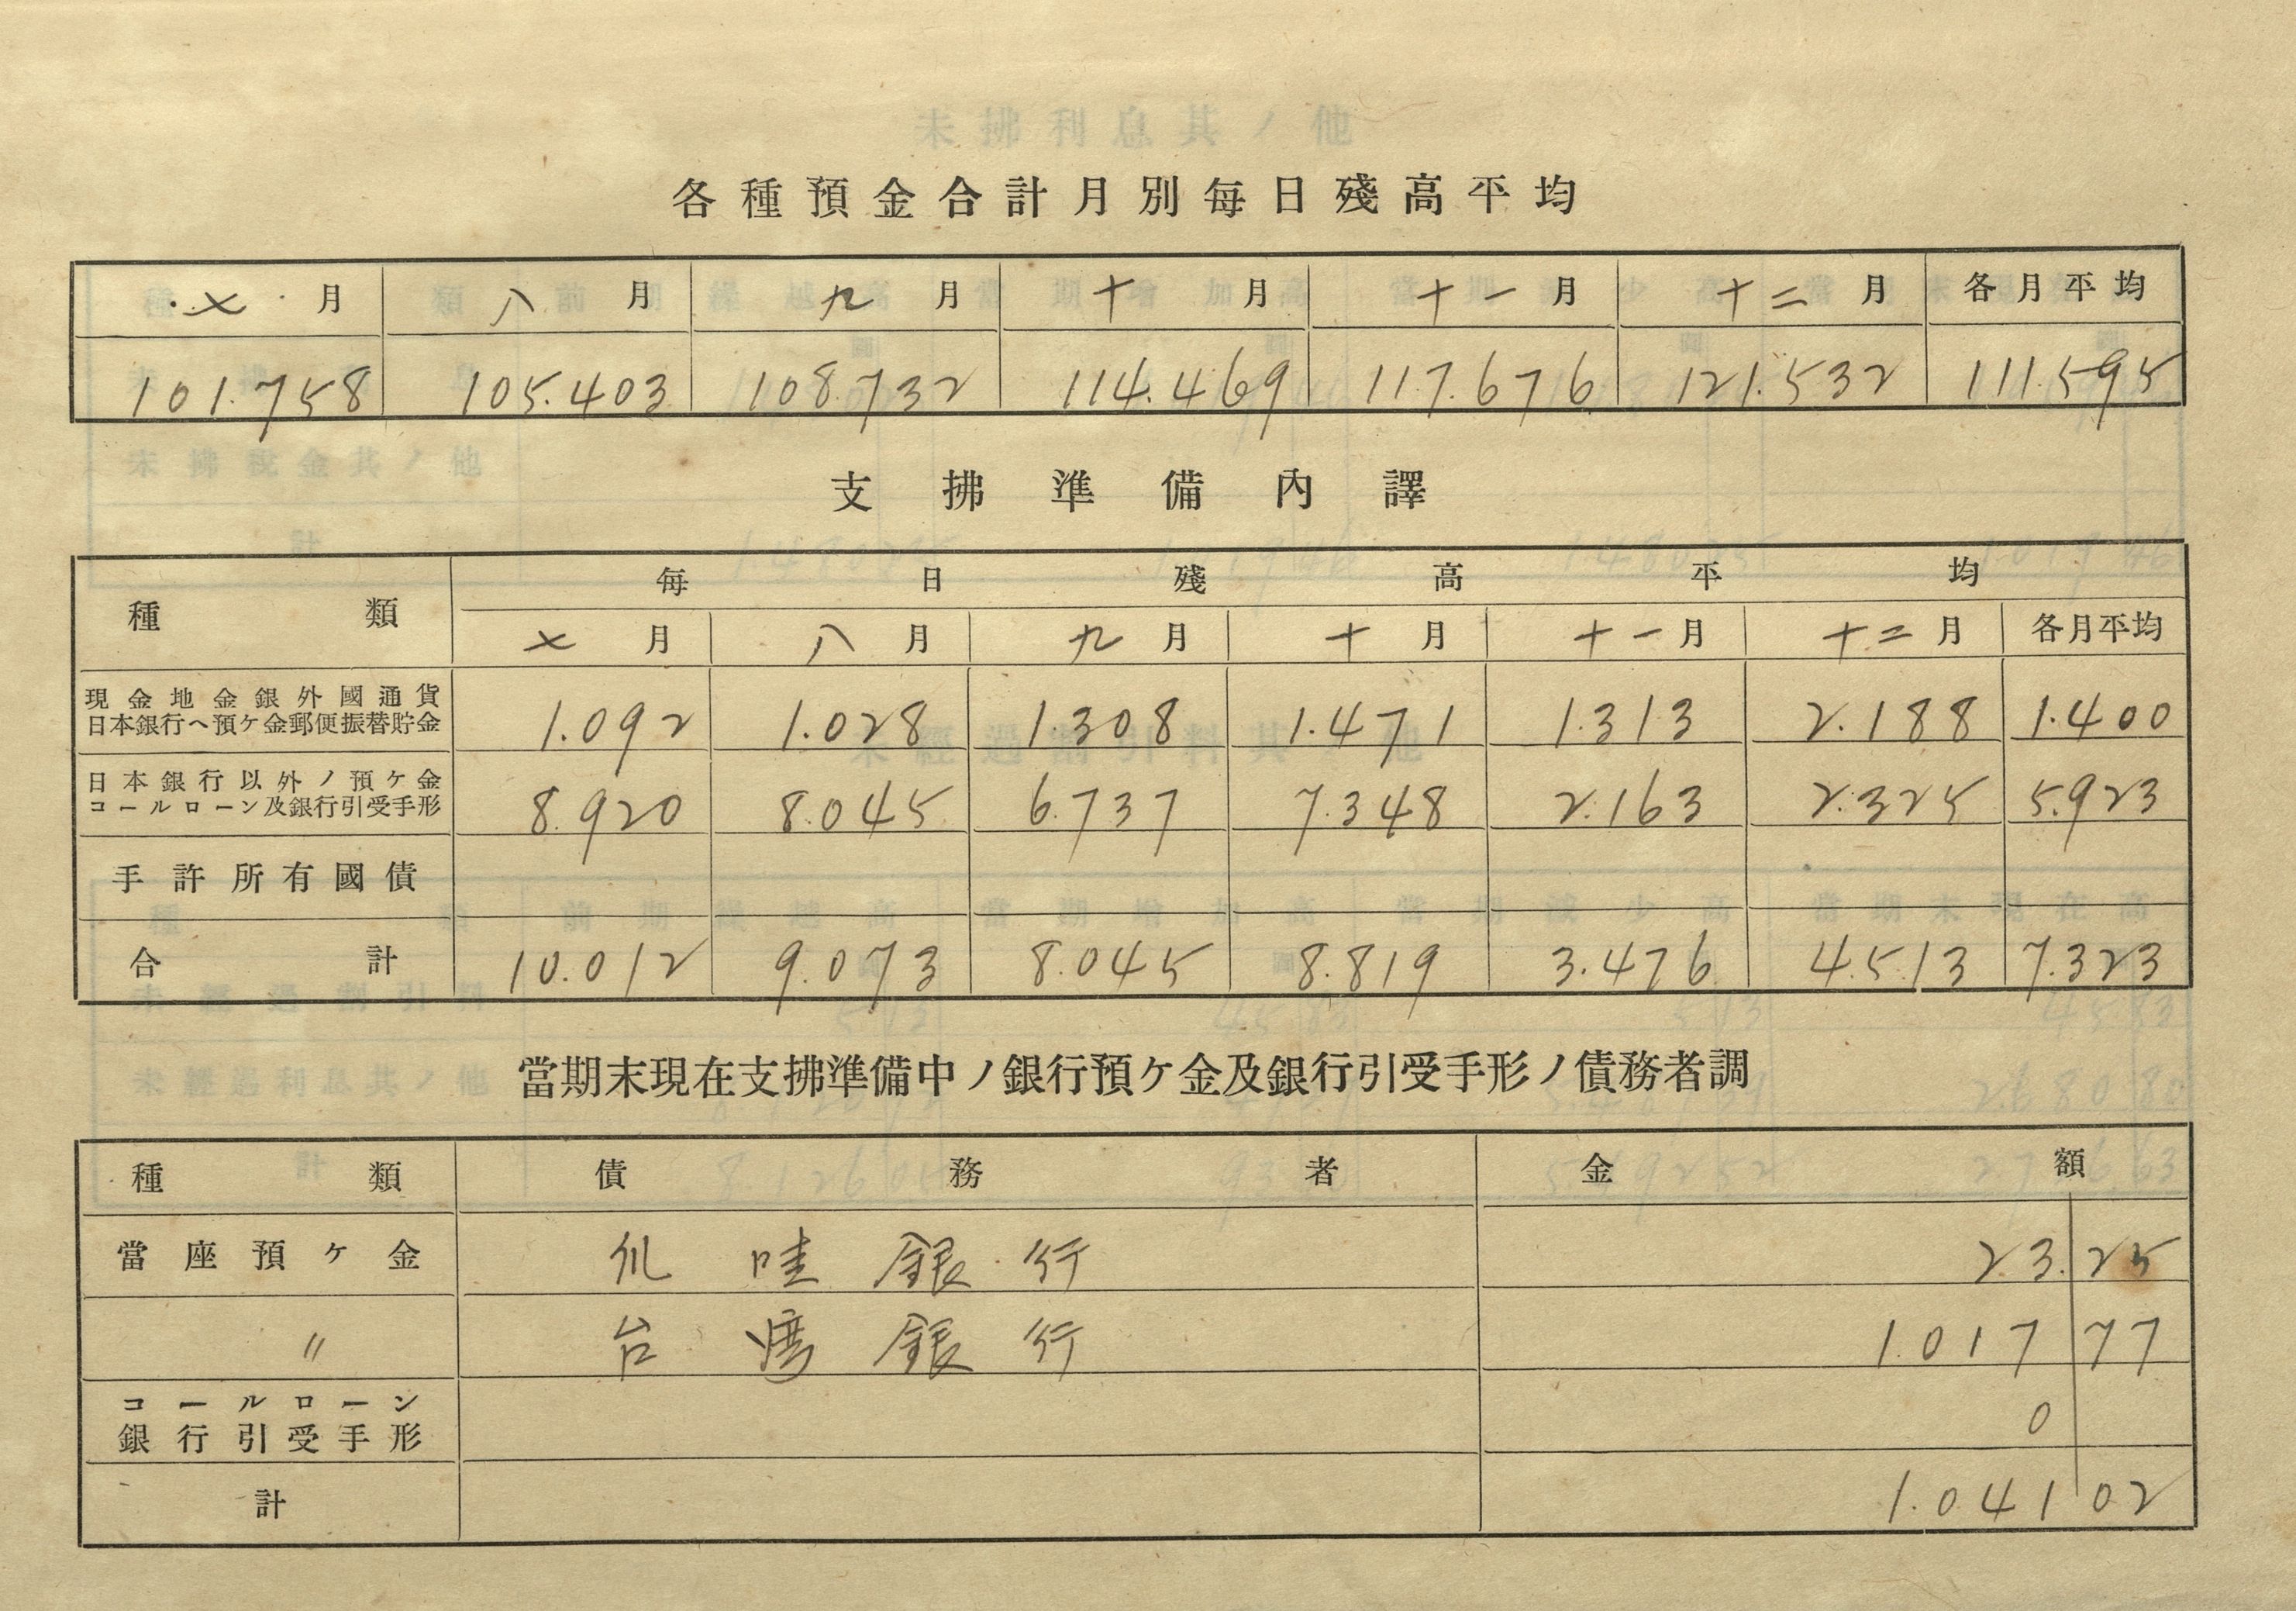 各種預金合計月別每日殘高平均
七月 八月 九月 十月 十一月 十二月 各月平均
101.758 105.403 108.732 114.469 117.676 121.532 111.595
支拂準備內譯
種類 每日殘高平均
七月 八月 九月 十月 十一月 十二月 各月平均
現金地金銀外國通貨
日本銀行ヘ預ケ金郵便振替貯金 1.092 1.028 1.308 1.471 1.313 2.188 1.400
日本銀行以外ノ預ケ金
コールローン及銀行引受手形 8.920 8.045 6.737 7.348 2.163 2.325 5.923
手許所有國債
合計 10.012 9.073 8.045 8.819 3.476 4.513 7.323
當期末現在支拂準備中ノ銀行預ケ金及銀行引受手形ノ債務者調
種類 債務者 金額
當座預ケ金 爪哇銀行 23.25
〃 台灣銀行 1.017 77
コールローン
銀行引受手形 0
計 1.041 02